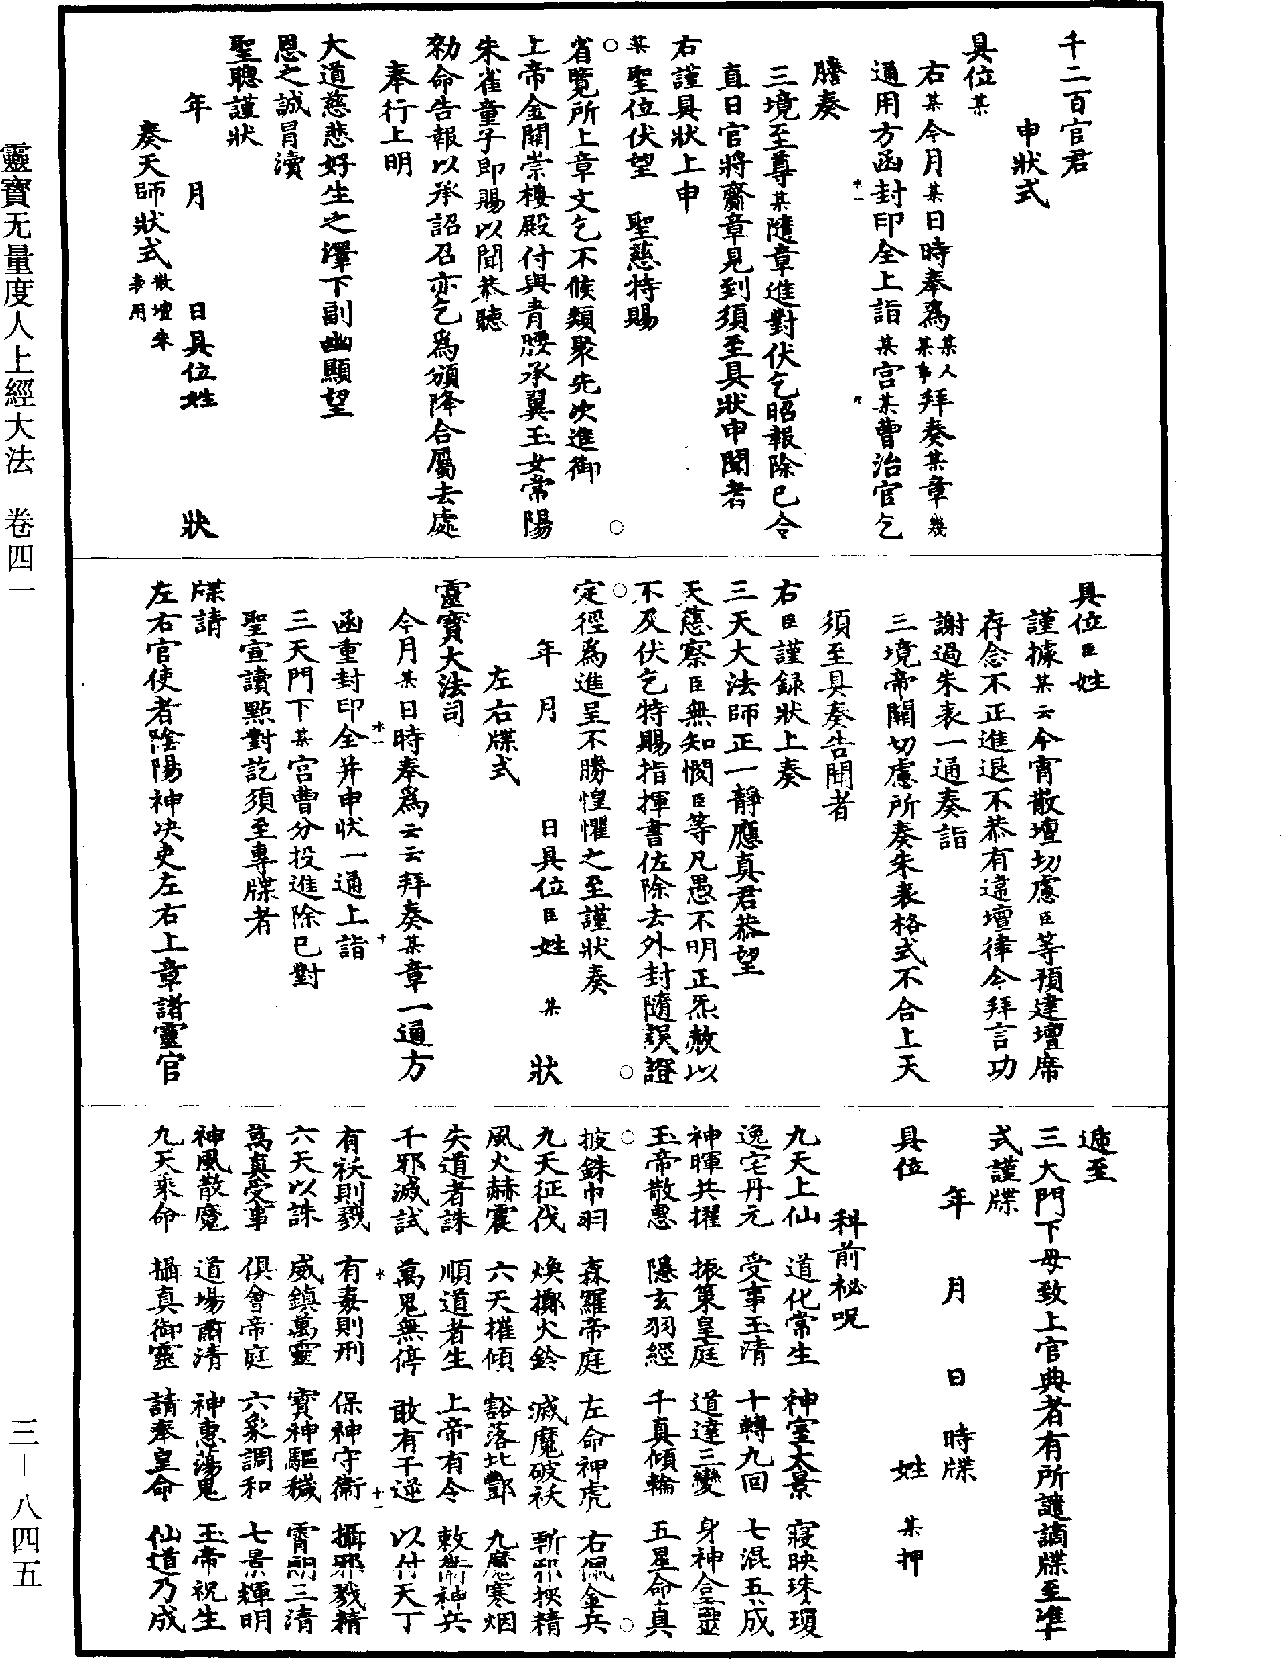 千二百官君
申狀式
具位某
右某今月某日時奉爲某人某事拜奏某章幾
通用方函封印全上詣某宮某曹治官乞
謄奏
三境至尊某隨章進對伏乞昭報除已令
直日官將齋章見到須至具狀申聞者
右謹具狀上申
某聖位伏望　聖慈特賜
省覽所上章文乞不候類聚先次進御
上帝金闕崇樓殿付與青腰承翼玉女常陽
朱雀童子即賜以聞恭聽
勑命告報以承詔召亦乞爲頒降合屬去處
奉行上明
大道慈悲好生之澤下副幽顯望
恩之誠冒瀆
聖聰謹狀
年　月　日具位姓　狀
奏天師狀式散壇朱表用
具位臣姓
謹據某云今宵散壇切慮臣等預建壇席
存念不正進退不恭有違壇律令拜言功
謝過朱表一通奏詣
三境帝闕切慮所奏朱表格式不合上天
須至具奏告聞者
右臣謹録狀上奏
三天大法師正一靜應真君恭望
天慈察臣無知憫臣等凡愚不明正炁赦以
不及伏乞特賜指揮書佐除去外封隨誤證
定徑爲進呈不勝惶懼之至謹狀奏
年　月　日具位臣姓　某　狀
左右牒式
靈寶大法司
今月某日時奉爲云云拜奏某章一通方
函重封印全并申狀一通上詣
三天門下某宮曹分投進除已對
聖宣讀點對訖須至專牒者
牒請
左右官使者陰陽神決吏左右上章諸靈官
遞至
三大門下毋致上官典者有所譴謫牒至準
式謹牒
年　月　日　時牒
具位　姓　某押
科前祕呪
九天上仙　道化常生　神室太景　寢映珠瓊
逸宅丹元　受事玉清　十轉九回　七混五成
神暉共擢　振策皇庭　道達三變　身神合靈
玉帝散惠　隱玄羽經　千真傾輪　五星命真
披銖巾羽　森羅帝庭　左命神虎　右佩金兵
九天征伐　煥擲火鈴　滅魔破袄　斬邪揆精
風火赫震　六天摧傾　豁落北酆　九魔寒烟
失道者誅　順道者生　上帝有令　敕衛神兵
千邪滅試　萬鬼無停　敢有干逆　以付天丁
有袄則戮　有毒則刑　保神守衛　攝邪戮精
六天以誅　威鎮萬靈　寶神驅穢　霄朗三清
萬真受事　俱會帝庭　六炁調和　七景輝明
神風散魔　道場肅清　神惠蕩鬼　玉帝祝生
九天乘命　攝真御靈　請奉皇命　仙道乃成
靈寶无量度人上經大法　卷四一
三—八四五